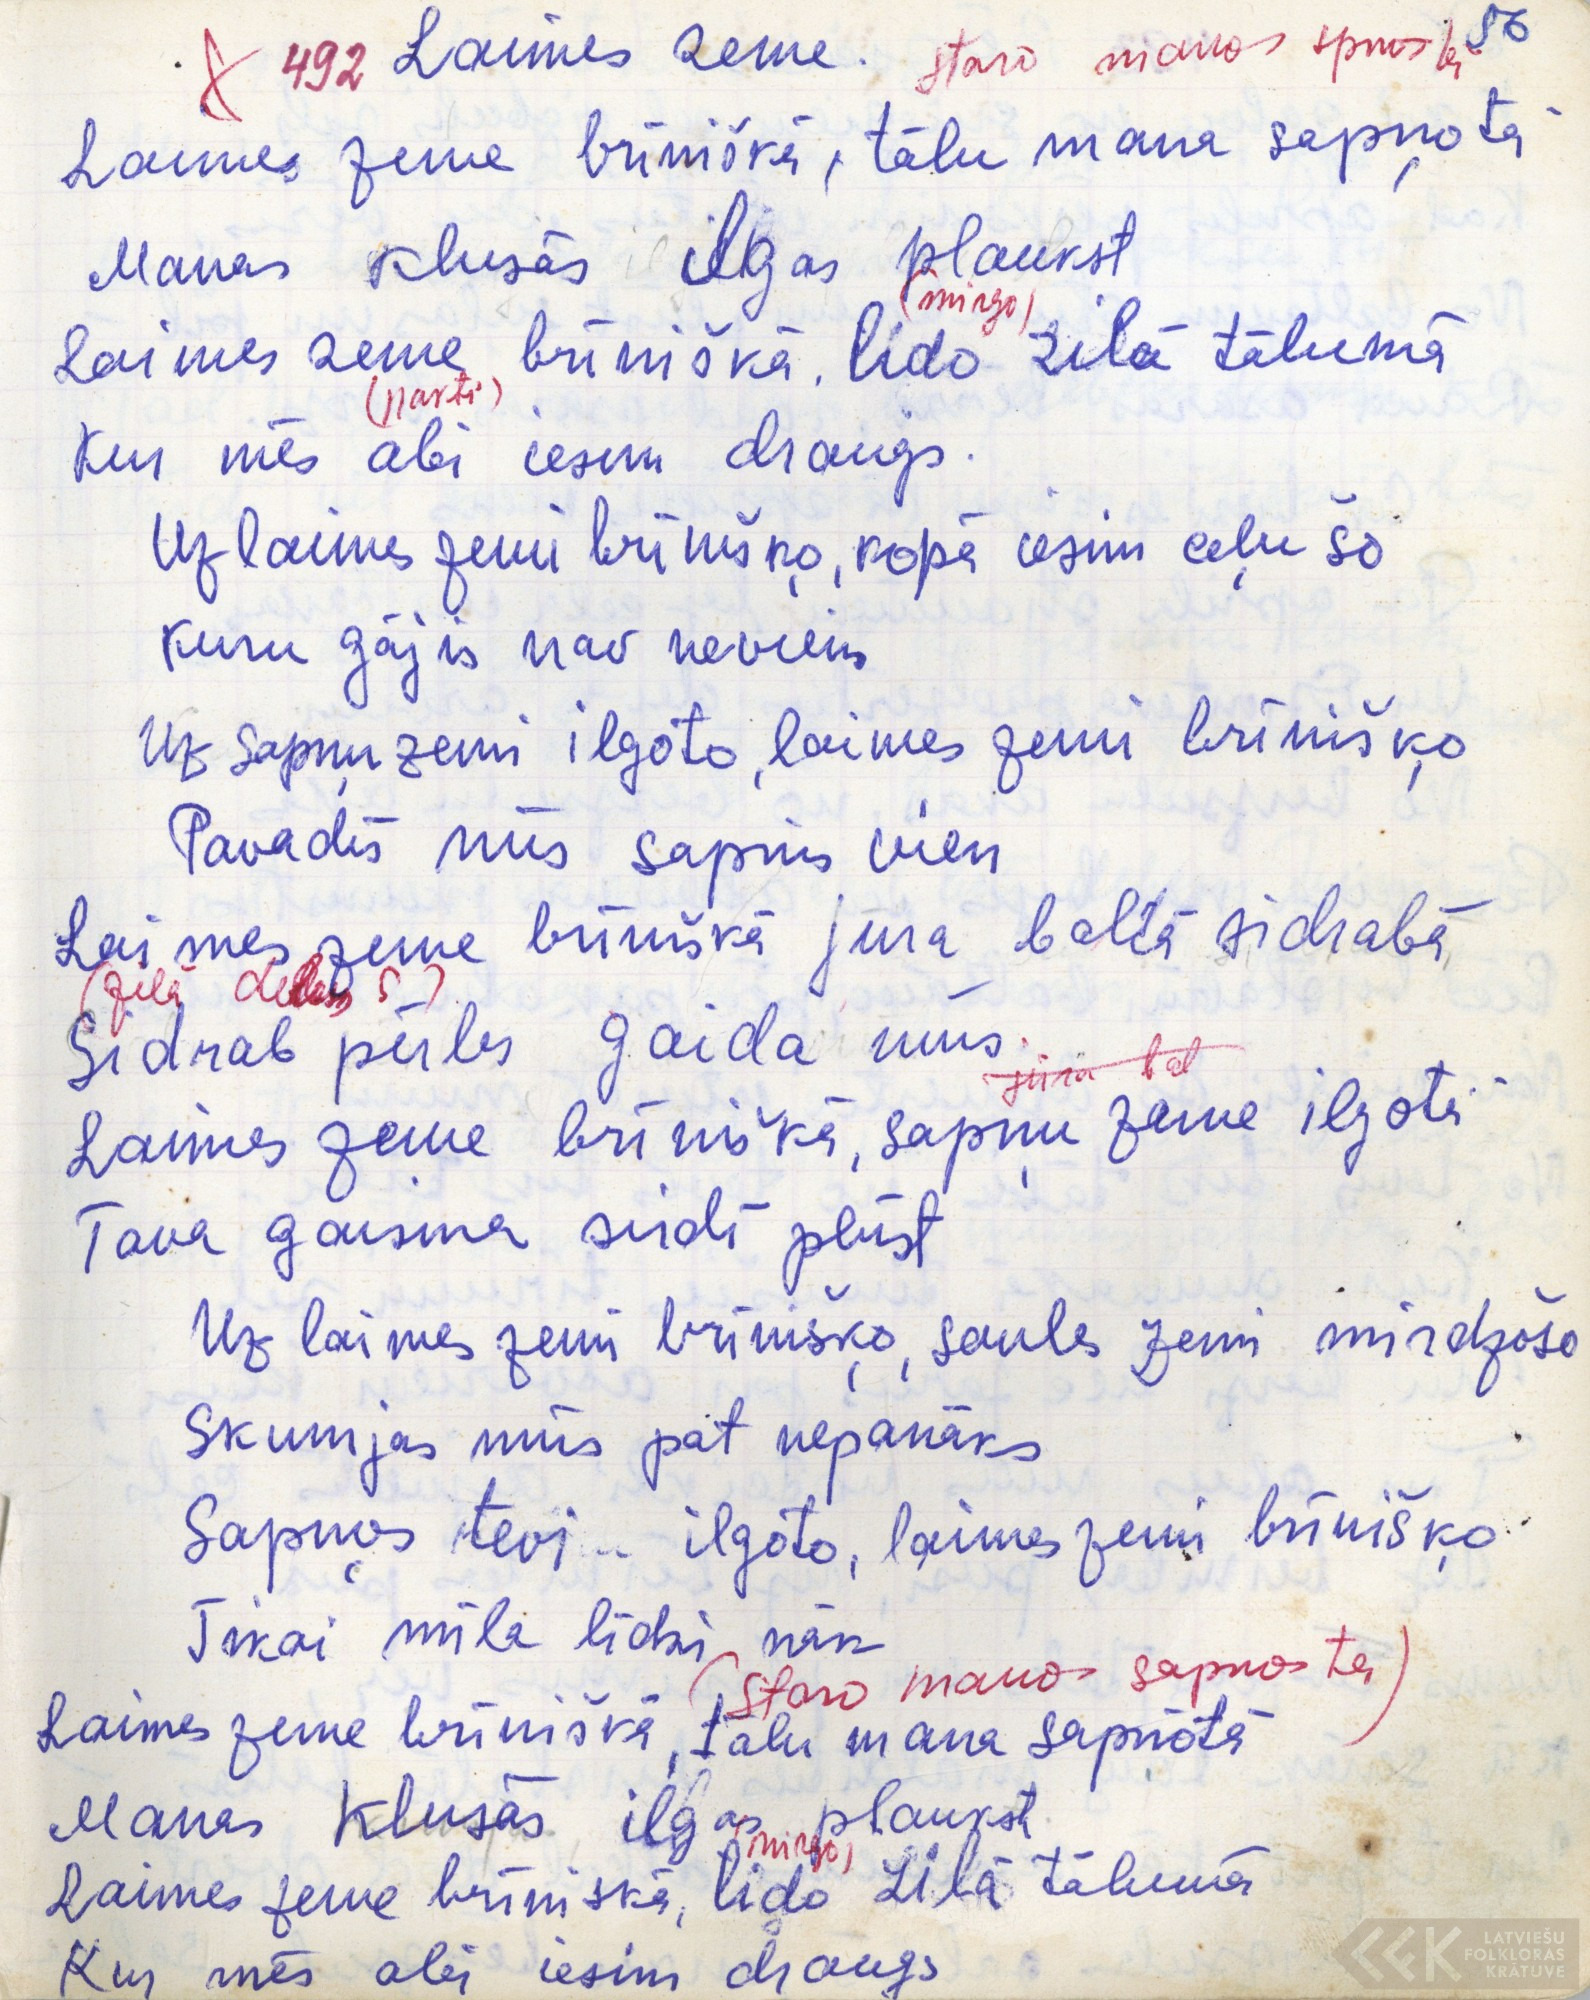 492 Laimes zeme. staro manos spnos tā 56
Laimes zeme brīnišķā, tālu mana sapņotā
Manas klusās ilgas plaukst
(mirgo)
Laimes zeme brīnišķā, lido zilā tālumā
(narti)
Kur mēs abi iesim draugs.
Uz laimes zemi brīnišķo, kopā iesim ceļu šo
Kuru gājis nav neviens
Uz sapņu zemi ilgoto, laimes zemi brīnišķo
Pavadīs mūs sapnis vien
Laimes zeme brīnišķā jūra baltā sidrabā
(zilā s)
Sidrab pērles gaida mūs.
jūra bal
Laimes zeme brīnišķā, sapņu zeme ilgotā
Tava gaisma sirdī plūst
Uz laimes zemi brīnišķo, saules zemi mirdzošo
Skumjas mūs pat nepanāks
Sapņos tevi ilgoto, laimes zemi brīnišķo
Tikai mīla līdzi nāk
(staro manos sapnos tā)
Laimes zeme brīnišķā, tālu mana sapņotā
Manas klusās ilgas plaukst
(mirgo)
Laimes zeme brīniskā, lido zilā tālumā
Kur mēs abi iesim draugs
LATVIEŠU
FOLKLORAS
KRĀTUVE